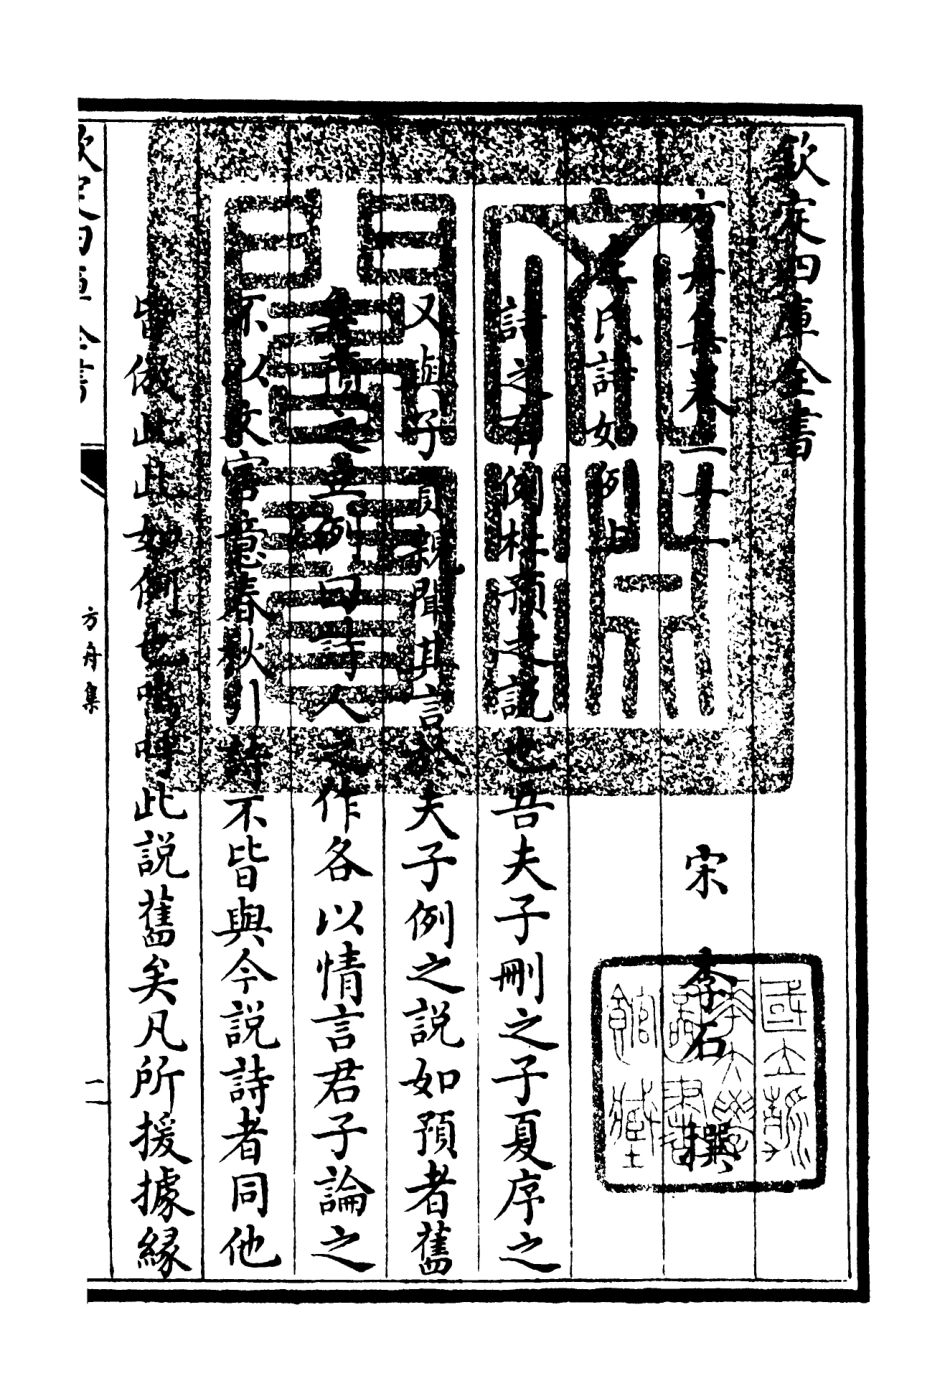 欽定四庫全書
方舟集卷二十一
宋 李石 撰
左氏詩如例上
詩之有例杜預之説也吾夫子刪之子夏序之
又與子貢親聞其言於夫子例之説如預者舊
矣預之立例曰詩人之作各以情言君子論之
不以文害意春秋引詩不皆與今説詩者同他
皆倣此此如例也嗚呼此説舊矣凡所援據緣
欽定四庫全書
方舟集
文淵閣寶